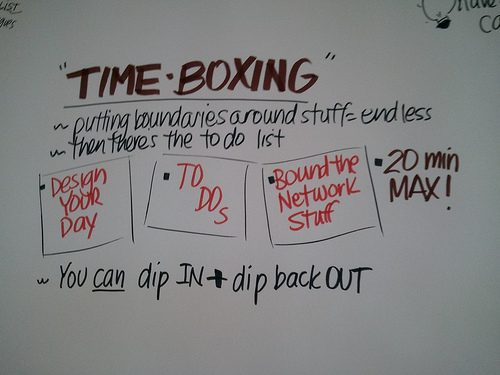 "TIME·BOXING"
~ putting boundaries around stuff = endless
~ then there's the to do list
Design
Your
Day
TO
DOs
Bound the
Network
Stuff
20 min
MAX!
~ You can dip IN + dip back OUT